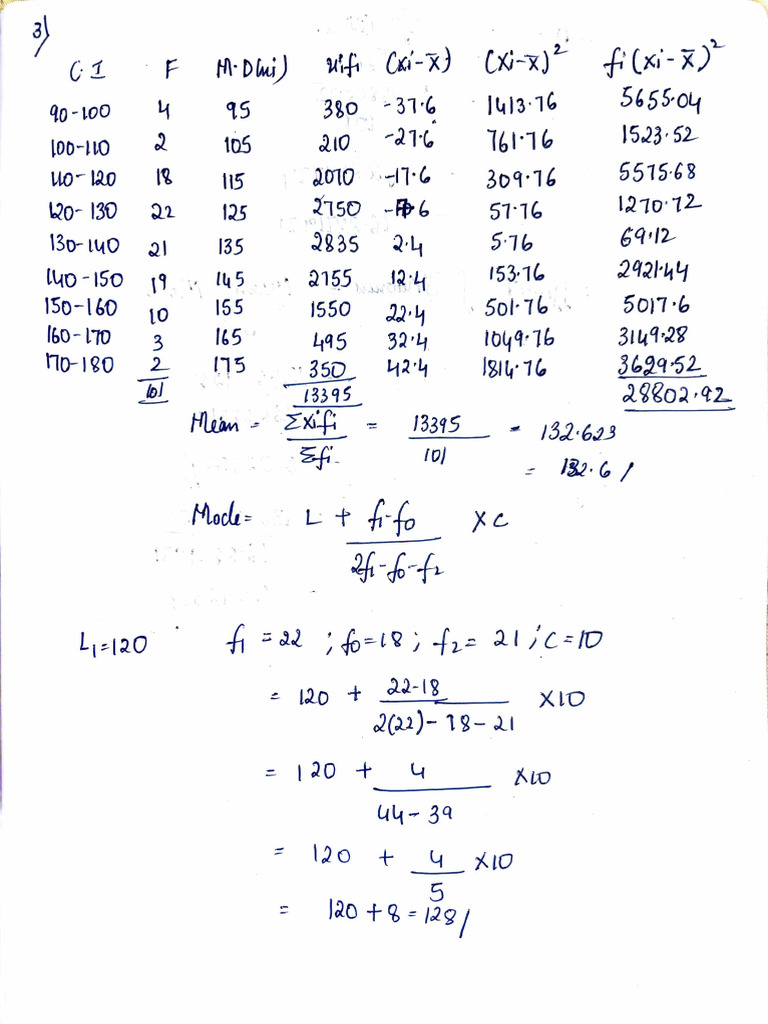 3)
C·I F M·D(mi) xifi (xi-x̄) (xi-x̄)² fi(xi-x̄)²
90-100 4 95 380 -37.6 1413.76 5655.04
100-110 2 105 210 -27.6 761.76 1523.52
110-120 18 115 2070 -17.6 309.76 5575.68
120-130 22 125 2750 -7.6 57.76 1270.72
130-140 21 135 2835 2.4 5.76 69.12
140-150 19 145 2755 12.4 153.76 2921.44
150-160 10 155 1550 22.4 501.76 5017.6
160-170 3 165 495 32.4 1049.76 3149.28
170-180 2 175 350 42.4 1814.76 3629.52
101 13395 28802.92
Mean = Σxifi / Σfi = 13395 / 101 = 132.623
= 132.6 /
Mode = L + f1-f0 / 2f1-f0-f2 × C
L1=120 f1 = 22 ; f0=18 ; f2 = 21 ; C=10
= 120 + 22-18 / 2(22)-18-21 ×10
= 120 + 4 / 44-39 ×10
= 120 + 4 / 5 ×10
= 120+8=128/